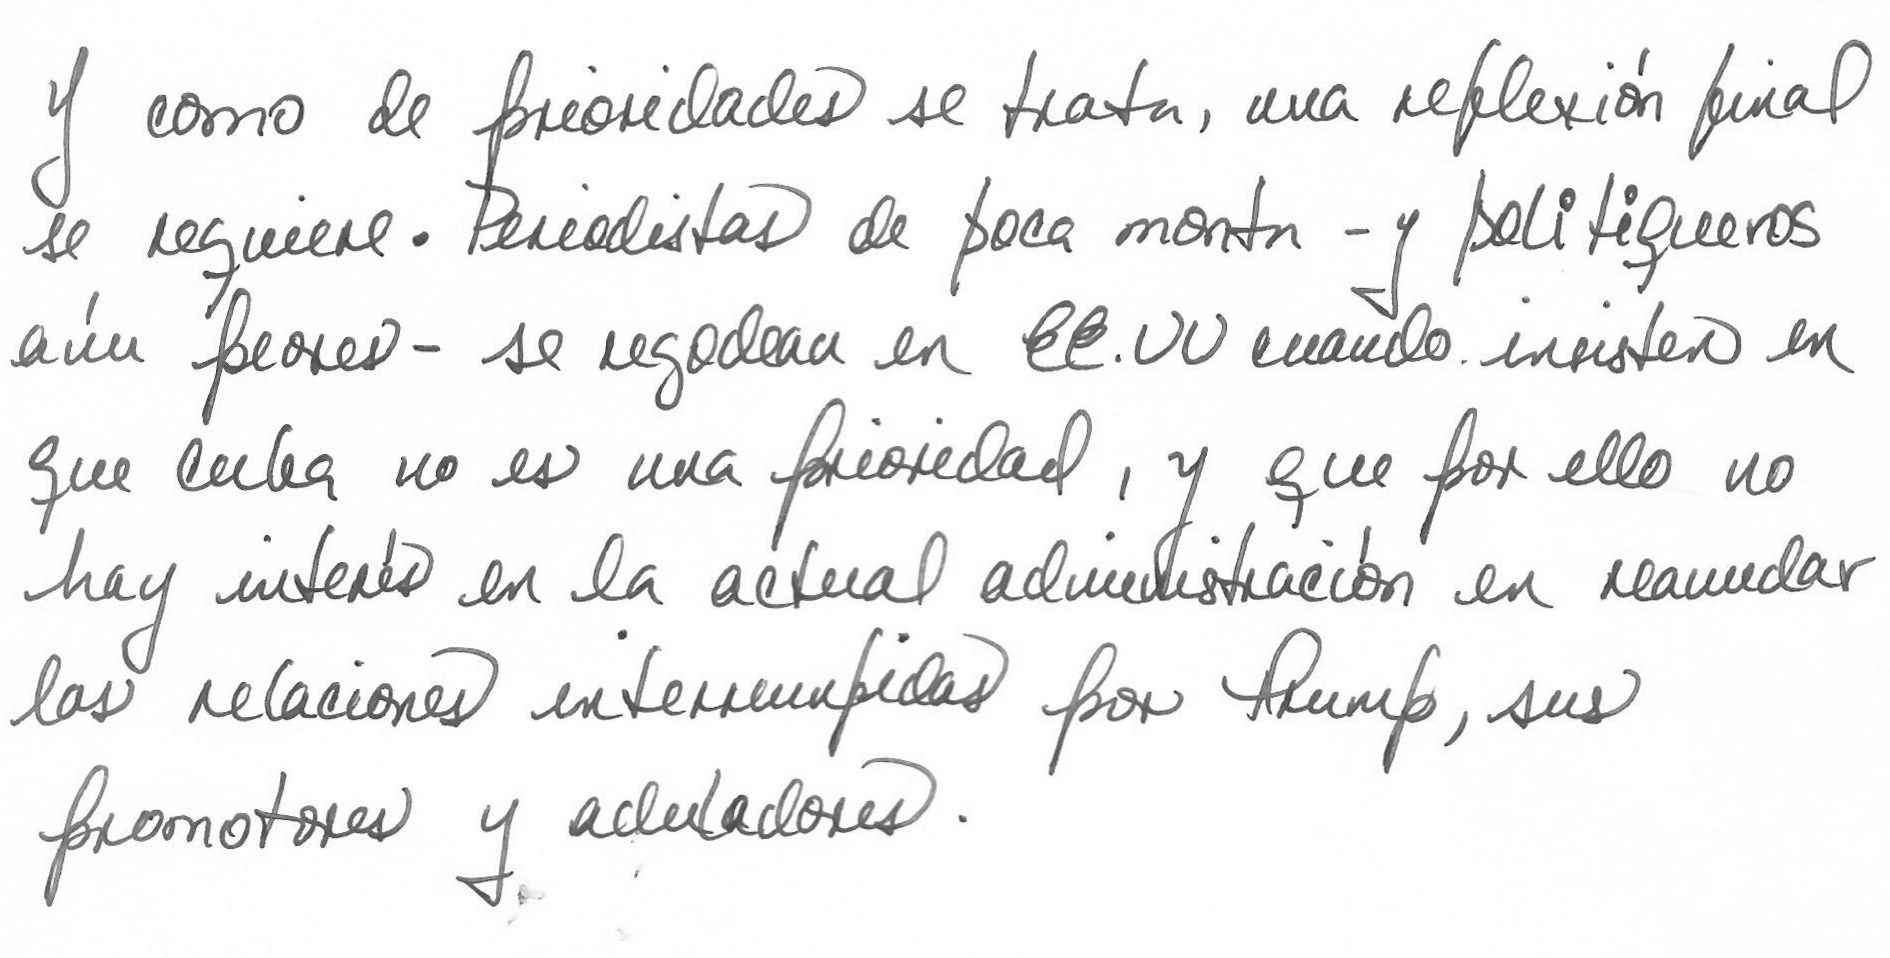 Y como de prioridades se trata, una reflexión final
se requiere. Periodistas de poca monta - y politiqueros
aún peores - se regodean en EE.UU cuando insisten en
que Cuba no es una prioridad, y que por ello no
hay interés en la actual administración en reanudar
las relaciones interrumpidas por Trump, sus
promotores y aduladores.